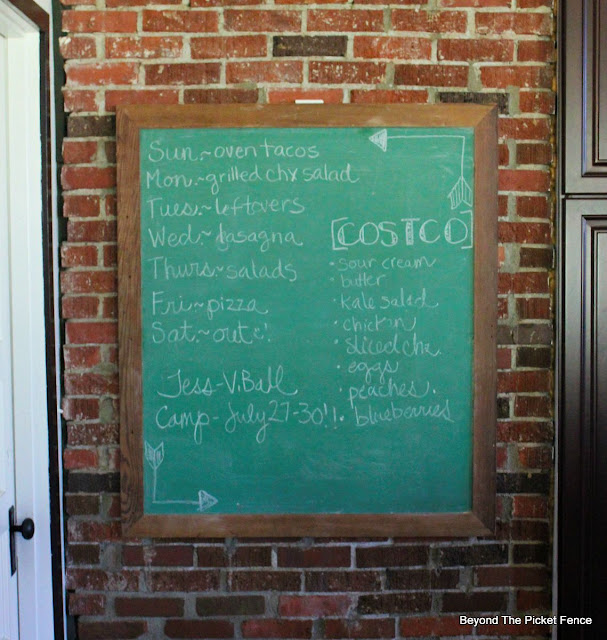 Sun.~oven tacos
Mon.~grilled chx salad
Tues.~leftovers
Wed.~lasagna
Thurs~salads
Fri~pizza
Sat.~out!
Jess-V.Ball
Camp-July 27-30!!
[COSTCO]
·sour cream
·butter
·kale salad
·chicken
·sliced che.
·eggs
·peaches.
·blueberries
Beyond The Picket Fence